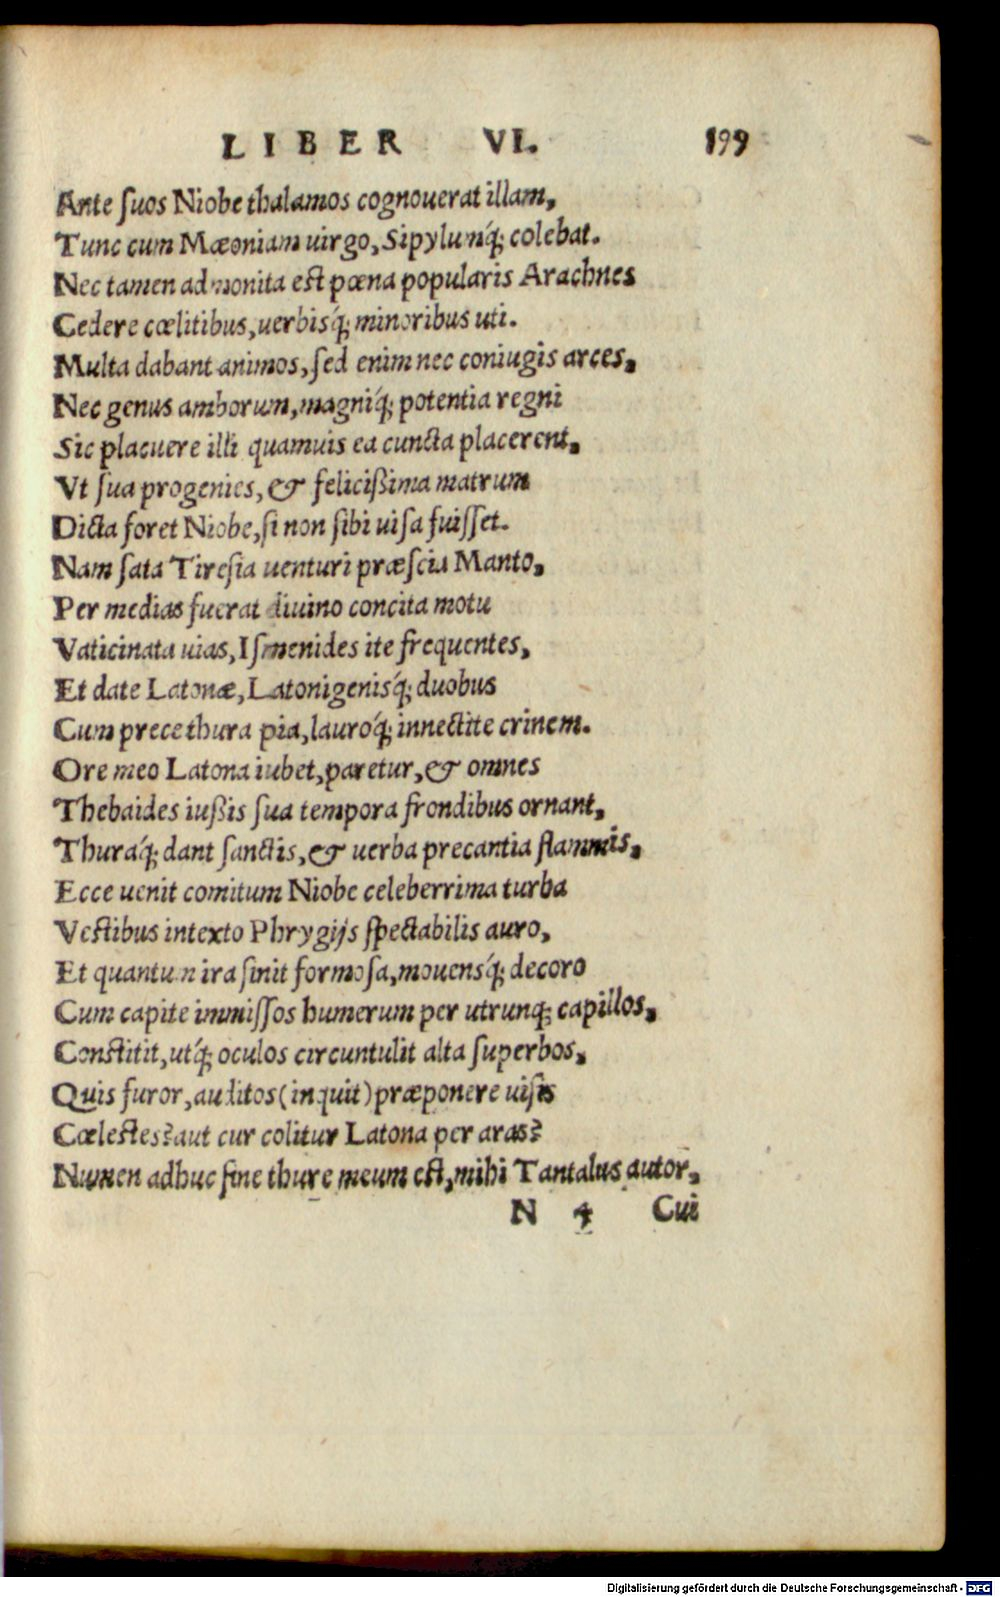 LIBER VI. 199
Ante ſuos Niobe thalamos cognouerat illam,
Tunc cum Mæoniam uirgo, Sipylumq́; colebat.
Nec tamen admonita est pœna popularis Arachnes
Cedere cœlitibus, uerbisq́; minoribus uti.
Multa dabant animos, ſed enim nec coniugis arces,
Nec genus amborum, magniq́; potentia regni
Sic placuere illi quamuis ea cuncta placerent,
Vt ſua progenies, & feliciſsima matrum
Dicta foret Niobe, ſi non ſibi uiſa fuiſſet.
Nam ſata Tireſia uenturi præſcia Manto,
Per medias fuerat diuino concita motu
Vaticinata uias, Iſmenides ite frequentes,
Et date Latonæ, Latonigenisq́; duobus
Cum prece thura pia, lauroq́; innectite crinem.
Ore meo Latona iubet, paretur, & omnes
Thebaides iuſsis ſua tempora frondibus ornant,
Thuraq́; dant ſanctis, & uerba precantia flammis,
Ecce uenit comitum Niobe celeberrima turba
Vestibus intexto Phrygijs ſpectabilis auro,
Et quantum ira ſinit formoſa, mouensq́; decoro
Cum capite immiſſos humerum per utrunq; capillos,
Constitit, utq́; oculos circuntulit alta ſuperbos,
Quis furor, auditos (inquit) præponere uiſis
Cœlestes? aut cur colitur Latona per aras?
Numen adhuc ſine thure meum est, mihi Tantalus autor,
N 4 Cui
Digitalisierung gefördert durch die Deutsche Forschungsgemeinschaft - DFG